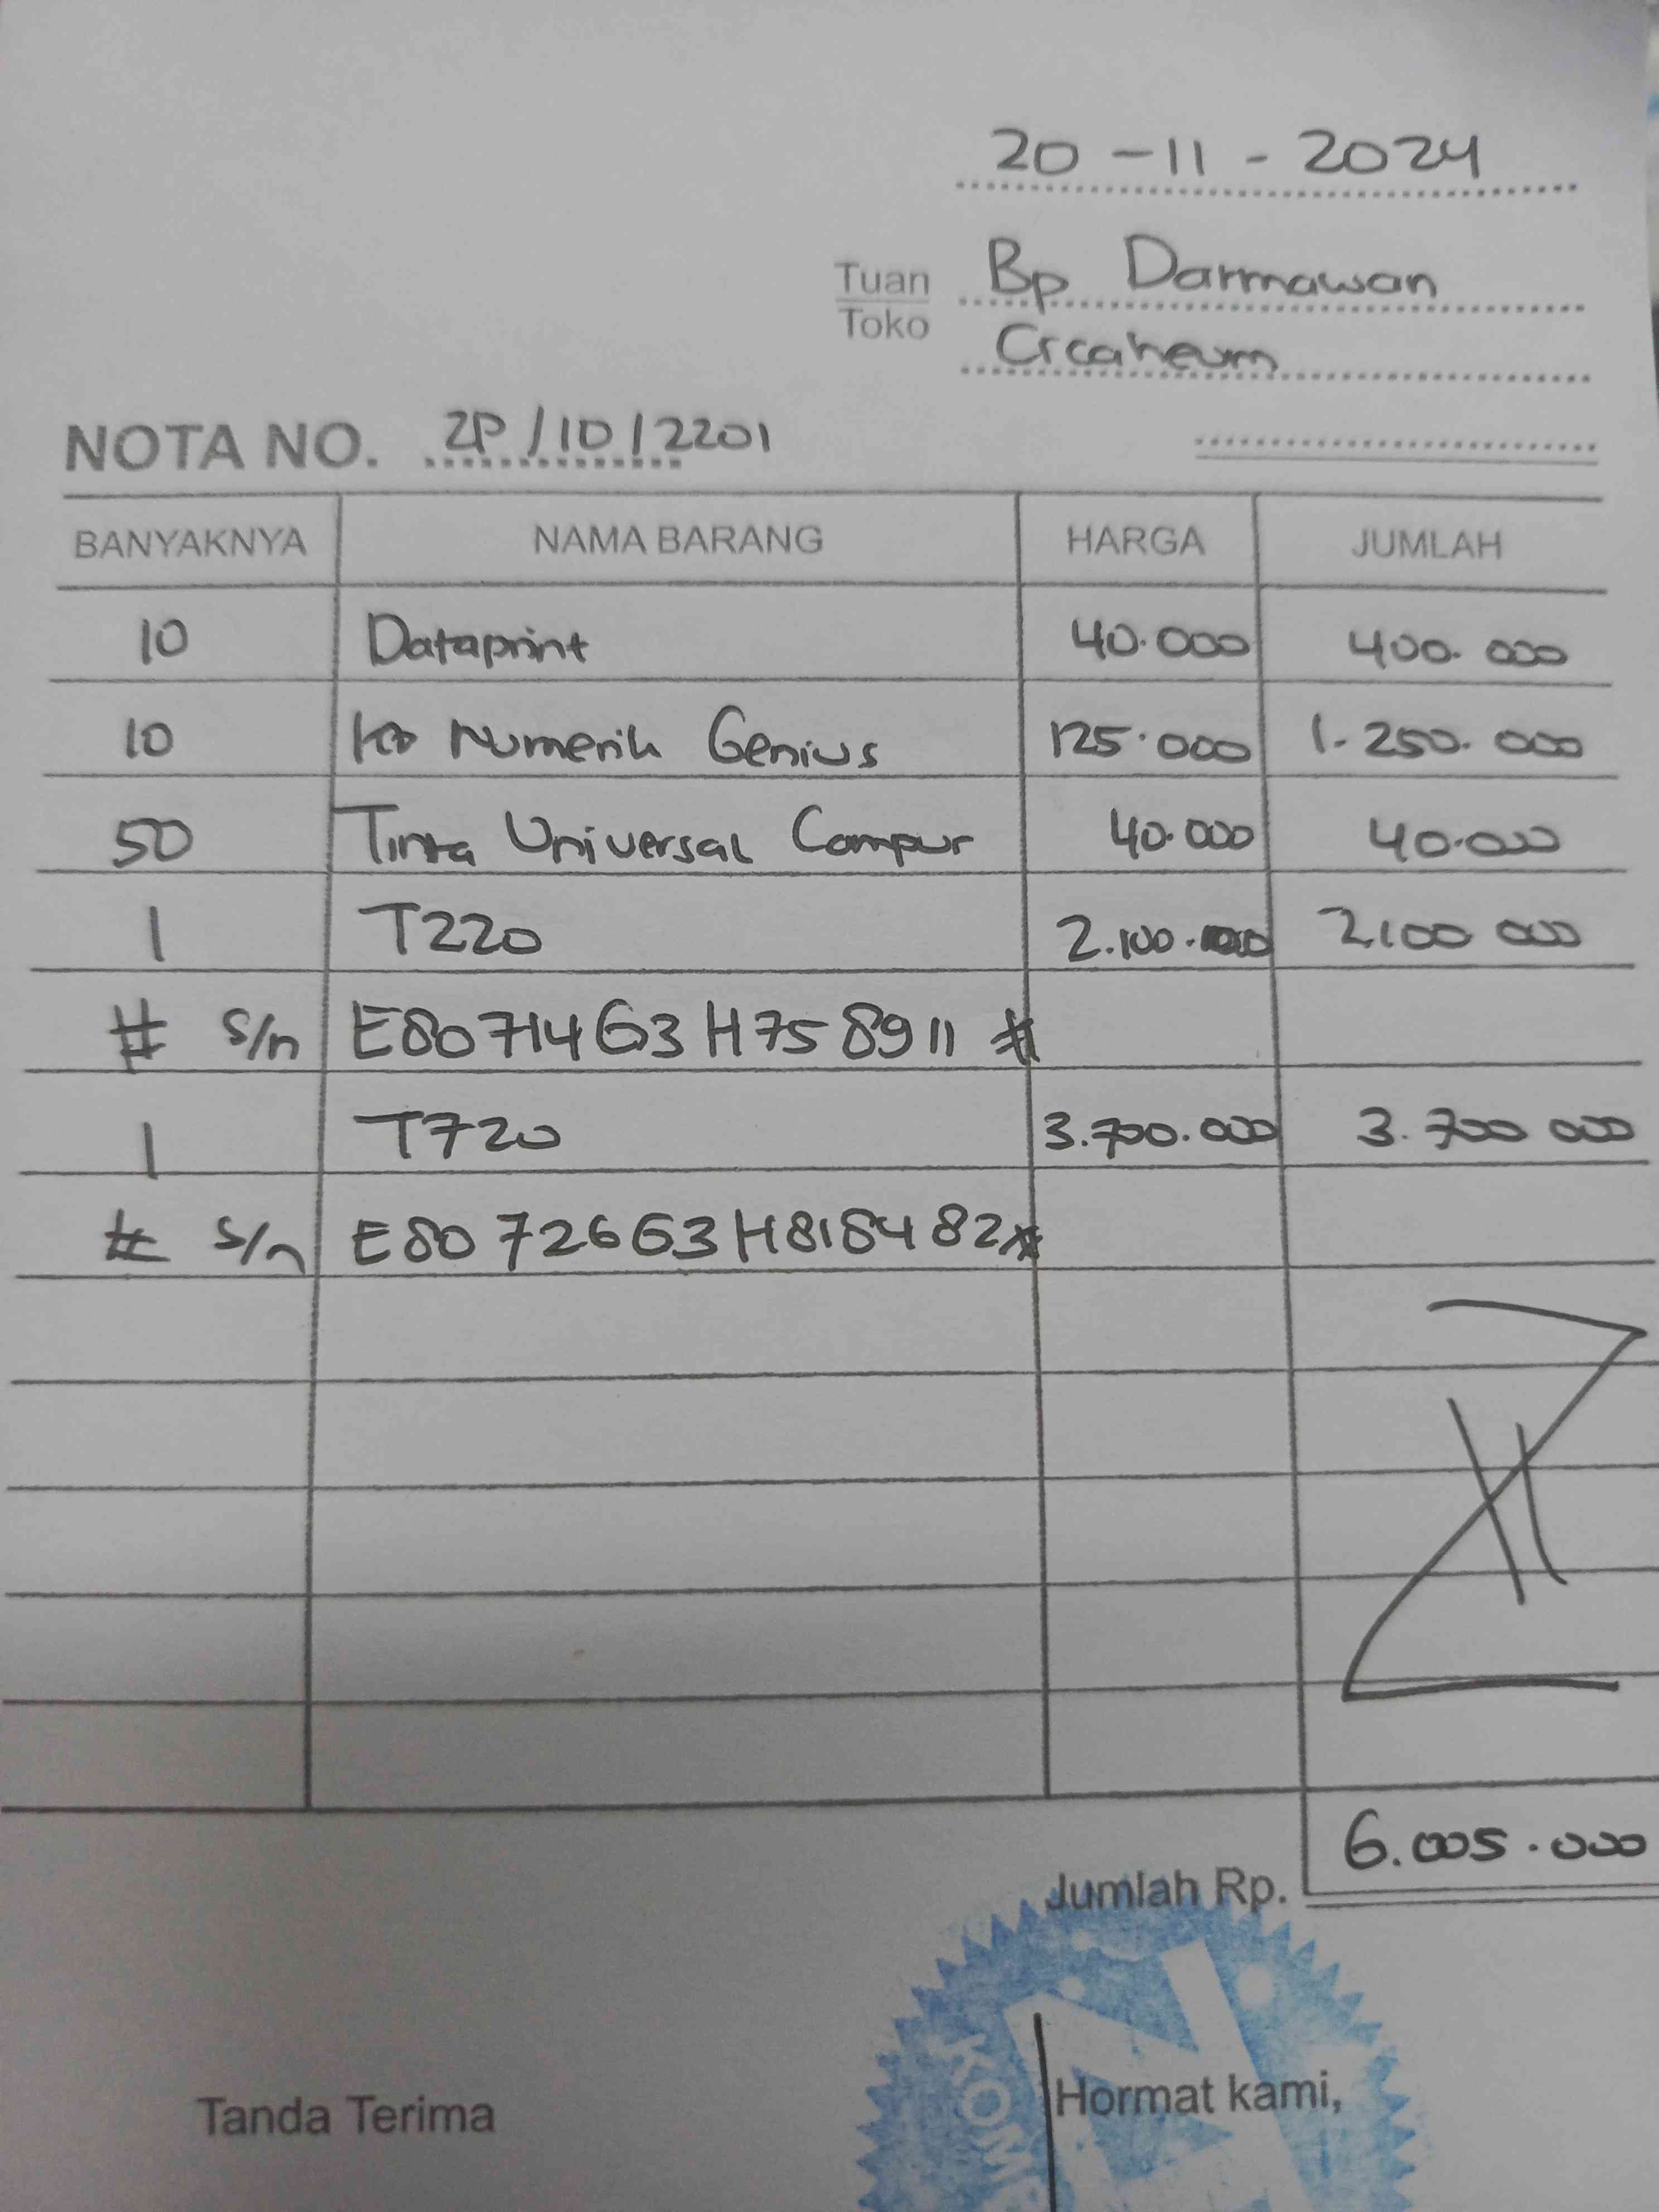 20 - 11 - 2024
Tuan Bp Darmawan
Toko Cicaheum
NOTA NO. ZP/10/2201
BANYAKNYA NAMA BARANG HARGA JUMLAH
10 Dataprint 40.000 400.000
10 Numerik Genius 125.000 1.250.000
50 Tinta Universal Campur 40.000 40.000
1 T220 2.100.000 2.100 000
# s/n E80714G3H758911 #
1 T720 3.700.000 3.700 000
# s/n E80726G3H818482#
Jumlah Rp. 6.005.000
Tanda Terima Hormat kami,